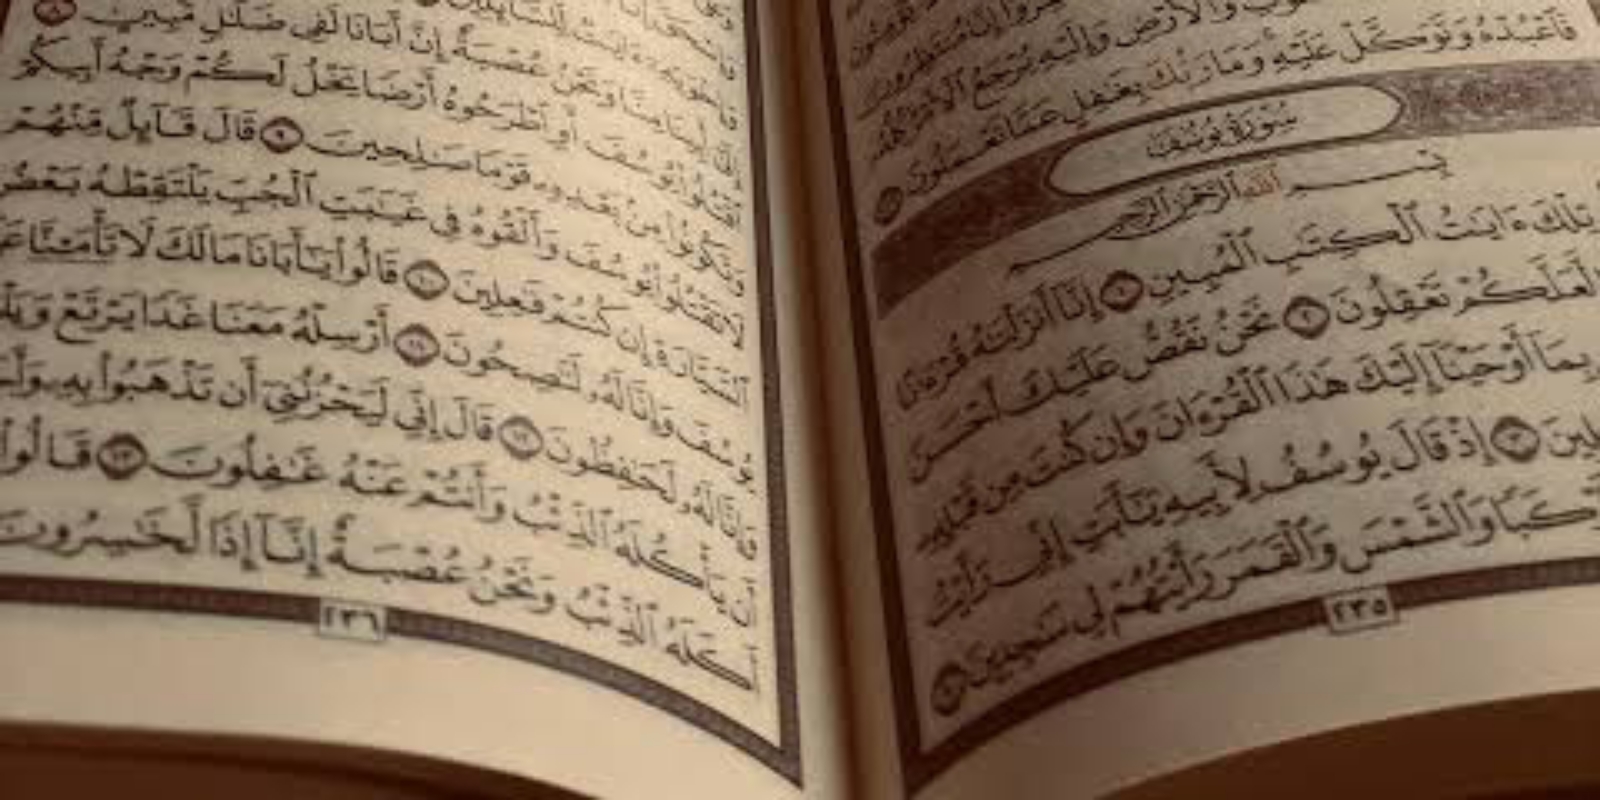 وَالْأَرْضِ وَإِلَيْهِ يُرْجَعُ الْأَمْرُ كُلُّهُ
فَاعْبُدْهُ وَتَوَكَّلْ عَلَيْهِ وَمَا رَبُّكَ بِغَافِلٍ عَمَّا تَعْمَلُونَ
سُورَةُ يُوسُفَ
بِسْمِ اللَّهِ الرَّحْمَٰنِ الرَّحِيمِ
تِلْكَ ءَايَٰتُ ٱلْكِتَٰبِ ٱلْمُبِينِ ١ إِنَّآ أَنزَلْنَٰهُ قُرْءَٰنًا
لَّعَلَّكُمْ تَعْقِلُونَ ٢ نَحْنُ نَقُصُّ عَلَيْكَ أَحْسَنَ
بِمَآ أَوْحَيْنَآ إِلَيْكَ هَٰذَا ٱلْقُرْءَانَ وَإِن كُنتَ مِن قَبْلِهِۦ
٣ إِذْ قَالَ يُوسُفُ لِأَبِيهِ يَٰٓأَبَتِ إِنِّى رَأَيْتُ
كَوْكَبًا وَٱلشَّمْسَ وَٱلْقَمَرَ رَأَيْتُهُمْ لِى سَٰجِدِينَ ٤
٢٣٥
إِلَىٰٓ أَبِينَا مِنَّا وَنَحْنُ عُصْبَةٌ إِنَّ أَبَانَا لَفِى ضَلَٰلٍ مُّبِينٍ ٨
ٱقْتُلُوا۟ يُوسُفَ أَوِ ٱطْرَحُوهُ أَرْضًا يَخْلُ لَكُمْ وَجْهُ أَبِيكُمْ
وَتَكُونُوا۟ مِنۢ بَعْدِهِۦ قَوْمًا صَٰلِحِينَ ٩ قَالَ قَآئِلٌ مِّنْهُمْ
لَا تَقْتُلُوا۟ يُوسُفَ وَأَلْقُوهُ فِى غَيَٰبَتِ ٱلْجُبِّ يَلْتَقِطْهُ بَعْضُ
ٱلسَّيَّارَةِ إِن كُنتُمْ فَٰعِلِينَ ١٠ قَالُوا۟ يَٰٓأَبَانَا مَا لَكَ لَا تَأْمَ۫نَّا عَلَىٰ
يُوسُفَ وَإِنَّا لَهُۥ لَنَٰصِحُونَ ١١ أَرْسِلْهُ مَعَنَا غَدًا يَرْتَعْ وَيَلْعَبْ
وَإِنَّا لَهُۥ لَحَٰفِظُونَ ١٢ قَالَ إِنِّى لَيَحْزُنُنِىٓ أَن تَذْهَبُوا۟ بِهِۦ وَأَخَافُ
أَن يَأْكُلَهُ ٱلذِّئْبُ وَأَنتُمْ عَنْهُ غَٰفِلُونَ ١٣ قَالُوا۟
أَكَلَهُ ٱلذِّئْبُ وَنَحْنُ عُصْبَةٌ إِنَّآ إِذًا لَّخَٰسِرُونَ
٢٣٦